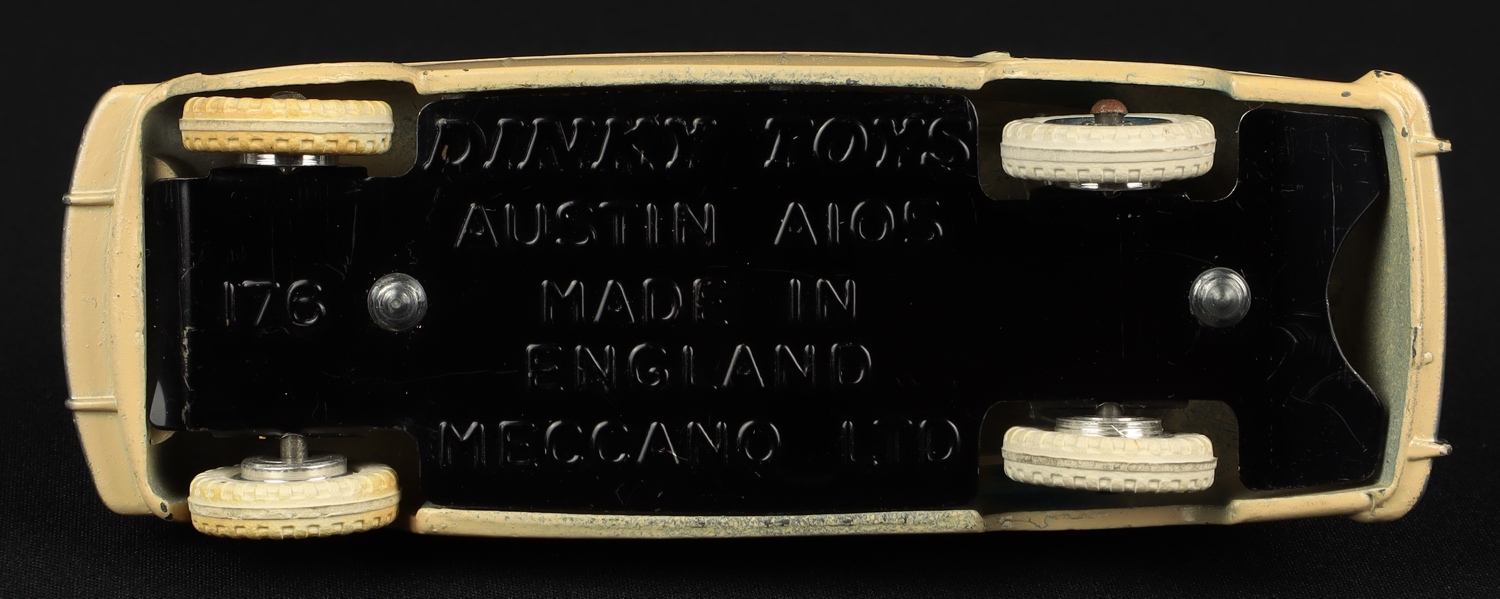 DINKY TOYS
AUSTIN A105
176
MADE IN
ENGLAND
MECCANO LTD